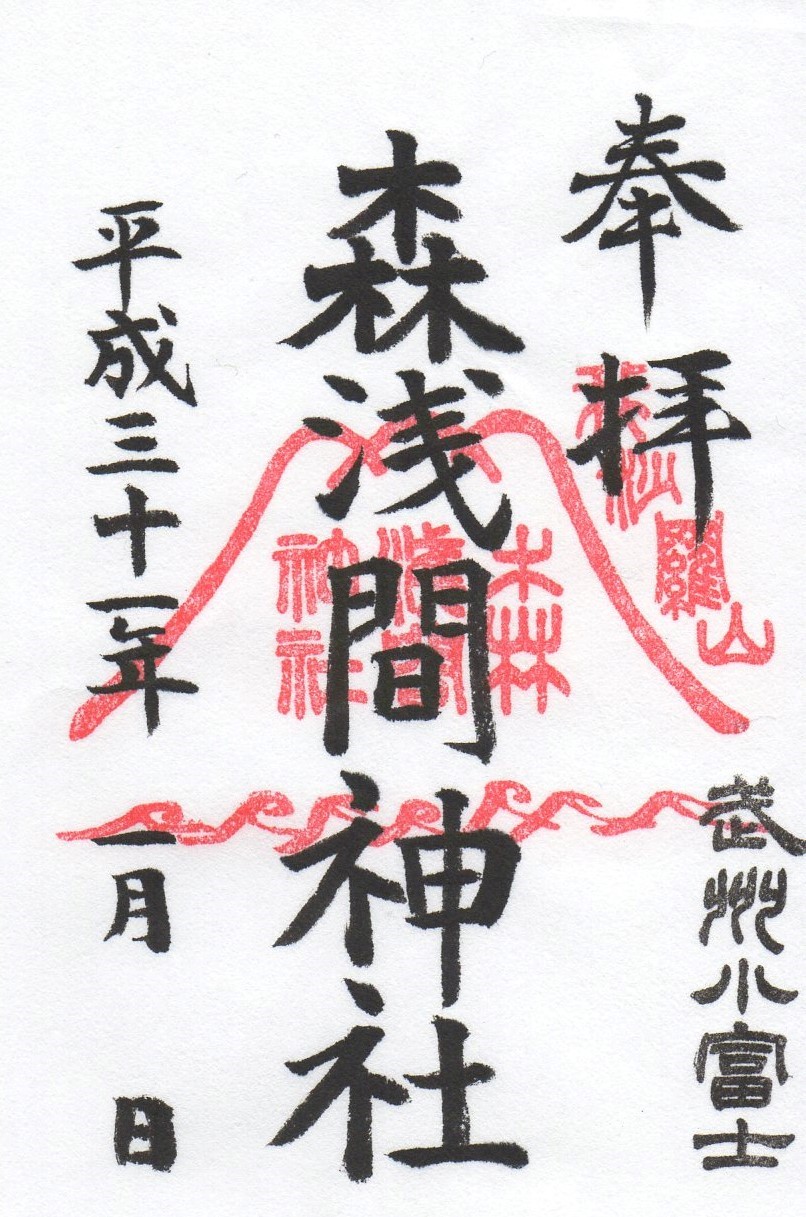 奉拝
羅山
武州小富士
森浅間神社
森
浅間
神社
平成三十一年一月 日